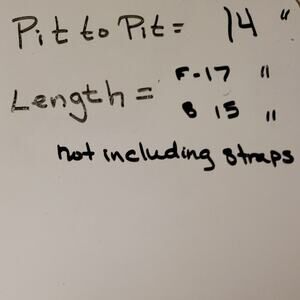 Pit to Pit = 14 "
Length = F-17 "
B 15 "
not including straps